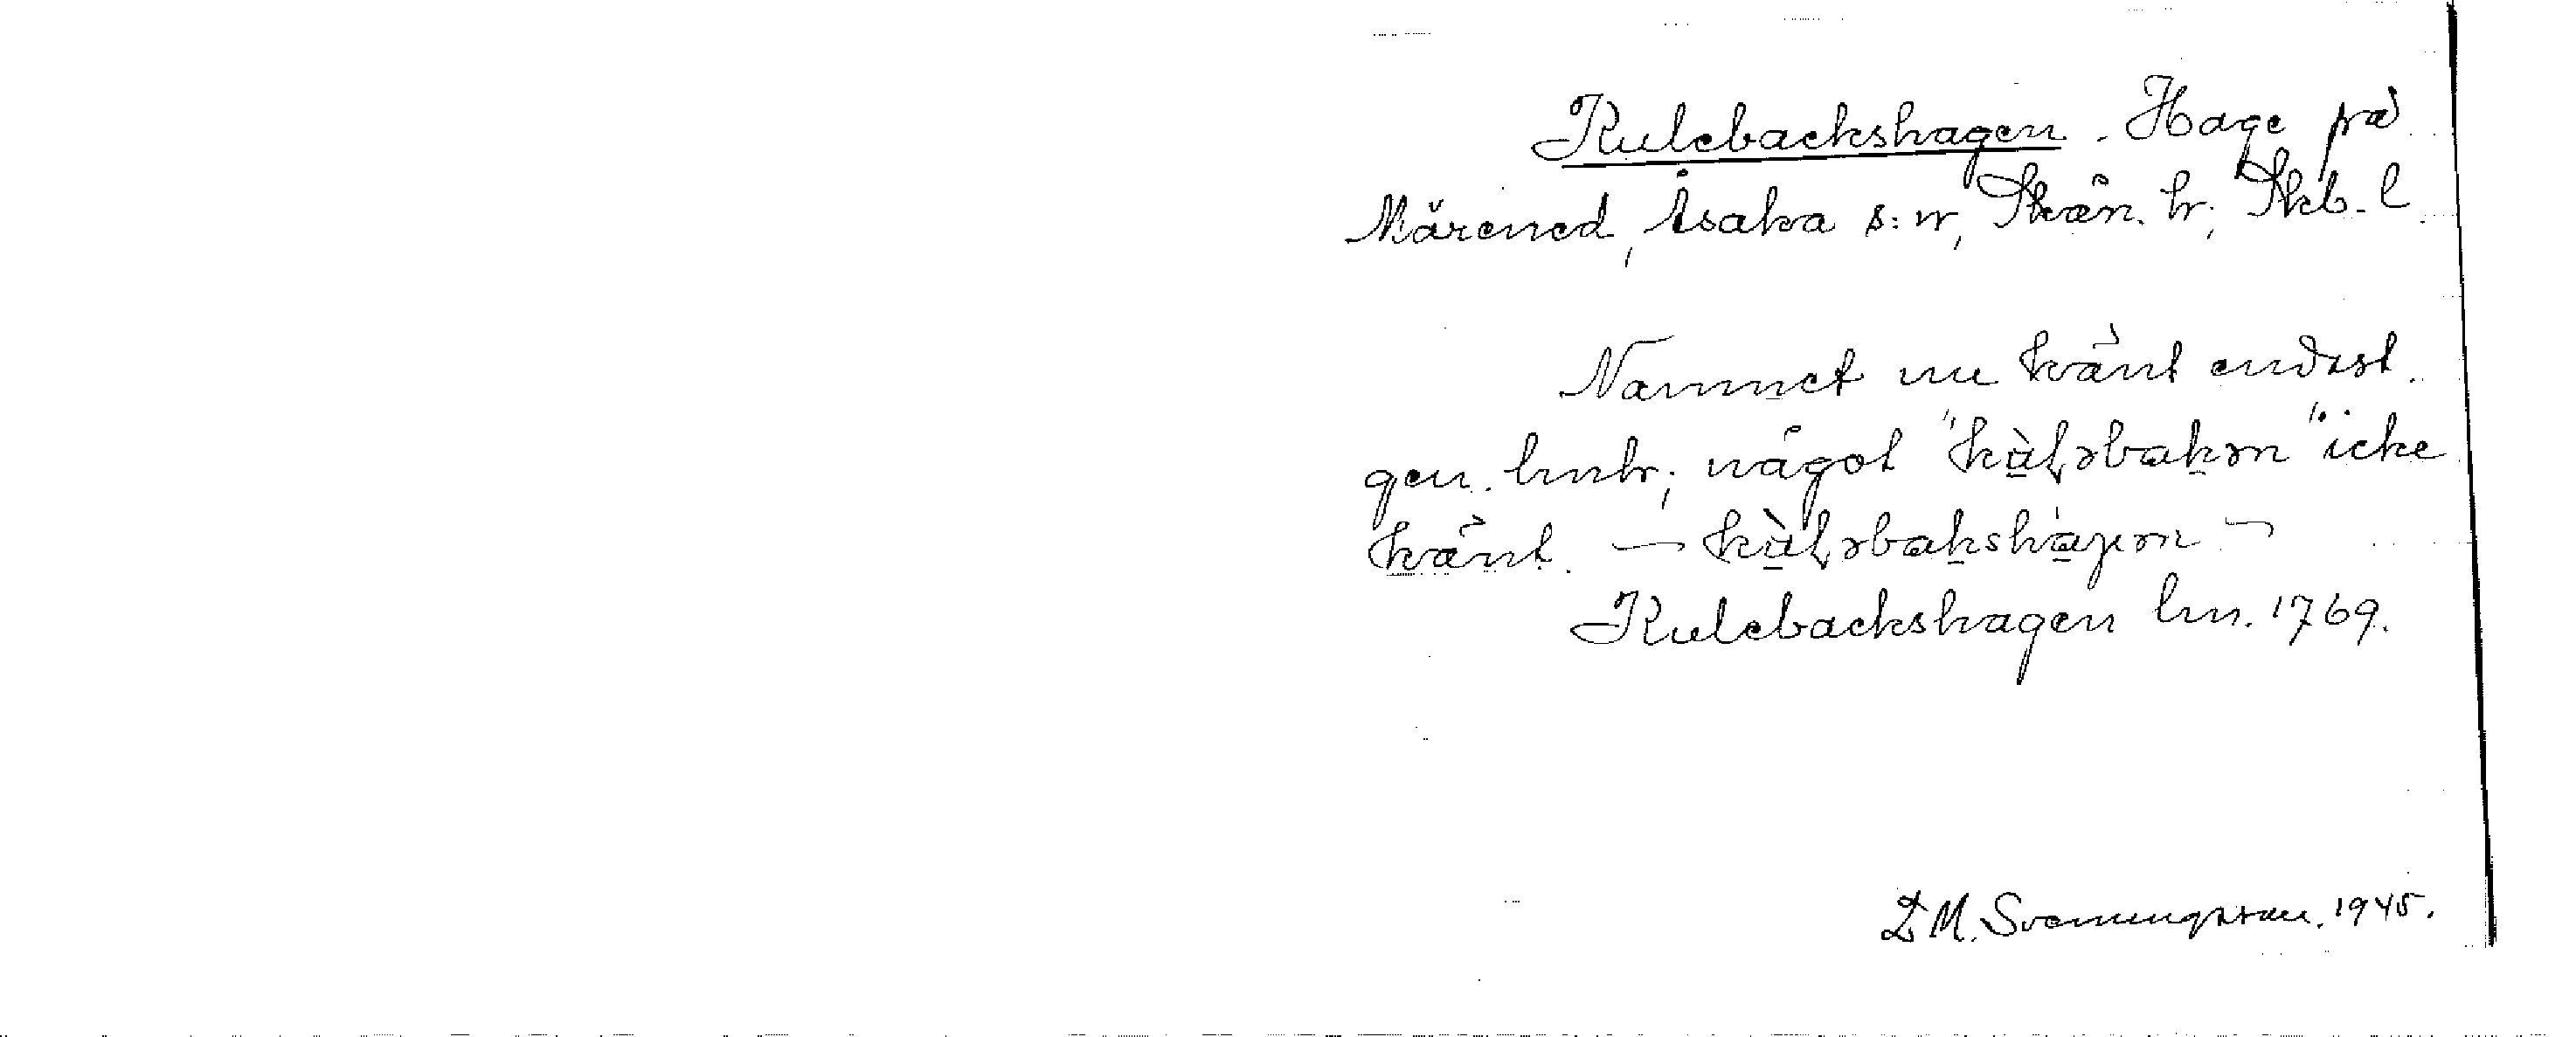 Kulebackshagen. Hage på
Märened, Åsaka s:n, Skån. hr, Skb. l.
Namnet nu känt endast
gen. lmhr; något "kùl̥əbakən" icke
känt. – kùl̥əbakshàgən –
Kulebackshagen lm. 1769.
D M. Svenungsson. 1945.